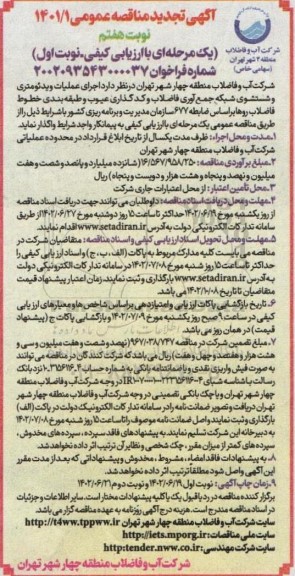 آگهی تجدید مناقصه عمومی ۱۴۰۱/۱
نوبت هفتم
(یک مرحله‌ای با ارزیابی کیفی-نوبت اول)
شماره فراخوان ۲۰۰۲۰۹۳۵۴۳۰۰۰۰۳۷
شرکت آب و فاضلاب
منطقه ۴ شهر تهران
(سهامی خاص)
شرکت آب و فاضلاب منطقه چهار شهر تهران در نظر دارد اجرای عملیات ویدئومتری
و شستشوی شبکه جمع‌آوری فاضلاب و کدگذاری عیوب و طبقه‌بندی خطوط
فاضلاب رو براساس ضابطه ۶۷۷ سازمان مدیریت و برنامه ریزی کشور با شرایط ذیل را از
طریق مناقصه عمومی یک مرحله‌ای با ارزیابی کیفی به پیمانکار واجد شرایط واگذار نماید.
۱.مدت و محل اجراء: ظرف مدت یکسال از تاریخ ابلاغ قرارداد در محدوده عملیاتی
شرکت آب و فاضلاب منطقه چهار شهر تهران
۲.مبلغ برآوردی مناقصه: ۱۶/۵۶۷/۹۵۸/۲۵۰ (شانزده میلیارد و پانصد و شصت و هفت
میلیون و نهصد و پنجاه و هشت هزار و دویست و پنجاه) ریال
۳.محل تأمین اعتبار: از محل اعتبارات جاری شرکت
۴.مهلت و محل دریافت اسناد مناقصه: داوطلبان می توانند جهت دریافت اسناد مناقصه
از روز یکشنبه مورخ ۱۴۰۲/۰۶/۱۹ حداکثر تا ساعت ۱۵ روز دوشنبه مورخ ۱۴۰۲/۰۶/۲۷ از طریق
سامانه تدارکات الکترونیکی دولت به آدرس www.setadiran.ir اقدام نمایند.
۵.مهلت و محل تحویل اسناد ارزیابی کیفی و اسناد مناقصه: متقاضیان شرکت در
مناقصه می بایست کلیه مدارک مربوط به پاکات (الف، ب، ج) و اسناد ارزیابی کیفی را
حداکثر تا ساعت ۱۵ روز شنبه مورخ ۱۴۰۲/۰۷/۰۸ در سامانه تدارکات الکترونیکی دولت
به آدرس www.setadiran.ir بارگذاری و ثبت نمایند، زمان اعتبار پیشنهاد قیمت
متقاضیان تا تاریخ ۱۴۰۲/۱۰/۰۸ می باشد.
۶. تاریخ بازگشایی پاکات ارزیابی و امتیازدهی براساس شاخص ها و معیارهای ارزیابی
کیفی در ساعت ۹ صبح روز یکشنبه مورخ ۱۴۰۲/۰۷/۰۹ و بازگشایی پاکات ج (پیشنهاد
قیمت) در همان روز می باشد.
۷. مبلغ تضمین شرکت در مناقصه ۹۶۷/۰۳۸/۷۴۷ (نهصد و شصت و هفت میلیون و سی و
هشت هزار و هفتصد و چهل و هفت) ریال می باشد که شرکت کنندگان در مناقصه می توانند
به صورت فیش واریزی نقدی و یا ضمانتنامه بانکی به شماره حساب
رسالت با شناسه شبای
چهار شهر تهران و یا چک بانکی تضمینی در وجه شرکت آب و فاضلاب منطقه چهار شهر
تهران دریافت و تصویر ضمانت نامه را در سامانه تدارکات الکترونیک دولت در پاکت (الف)
بارگذاری و ثبت نمایند و اصل ضمانت نامه موصوف را تا ساعت ۱۵ روز شنبه مورخ ۱۴۰۲/۰۷/۰۸
به دبیرخانه این شرکت تسلیم نمایند. به پیشنهادهای فاقد سپرده، سپرده‌های مخدوش،
سپرده های کمتر از میزان مقرر، چک شخصی و نظایر آن ترتیب اثر داده نخواهد شد.
۸. به پیشنهادات فاقد امضاء، مشروط، مخدوش و پیشنهاداتی که بعد از مدت مقرر
این آگهی واصل شود مطلقا ترتیب اثر داده نخواهد شد.
۹. زمان چاپ آگهی: نوبت اول ۱۴۰۲/۰۶/۱۹ و نوبت دوم ۱۴۰۲/۰۶/۲۱
برگزار کننده مناقصه در رد یا قبول یک یا کلیه پیشنهادات مختار است. سایر اطلاعات و جزئیات
در اسناد مناقصه مندرج است. هزینه درج آگهی روزنامه به عهده مناقصه گزار می باشد.
سایت شرکت آب و فاضلاب منطقه چهار شهر تهران http://t4ww.tppww.ir
سایت ملی مناقصات: http://iets.mporg.ir
سایت شرکت مهندسی: http:tender.nww.co.ir
شرکت آب و فاضلاب منطقه چهار شهر تهران